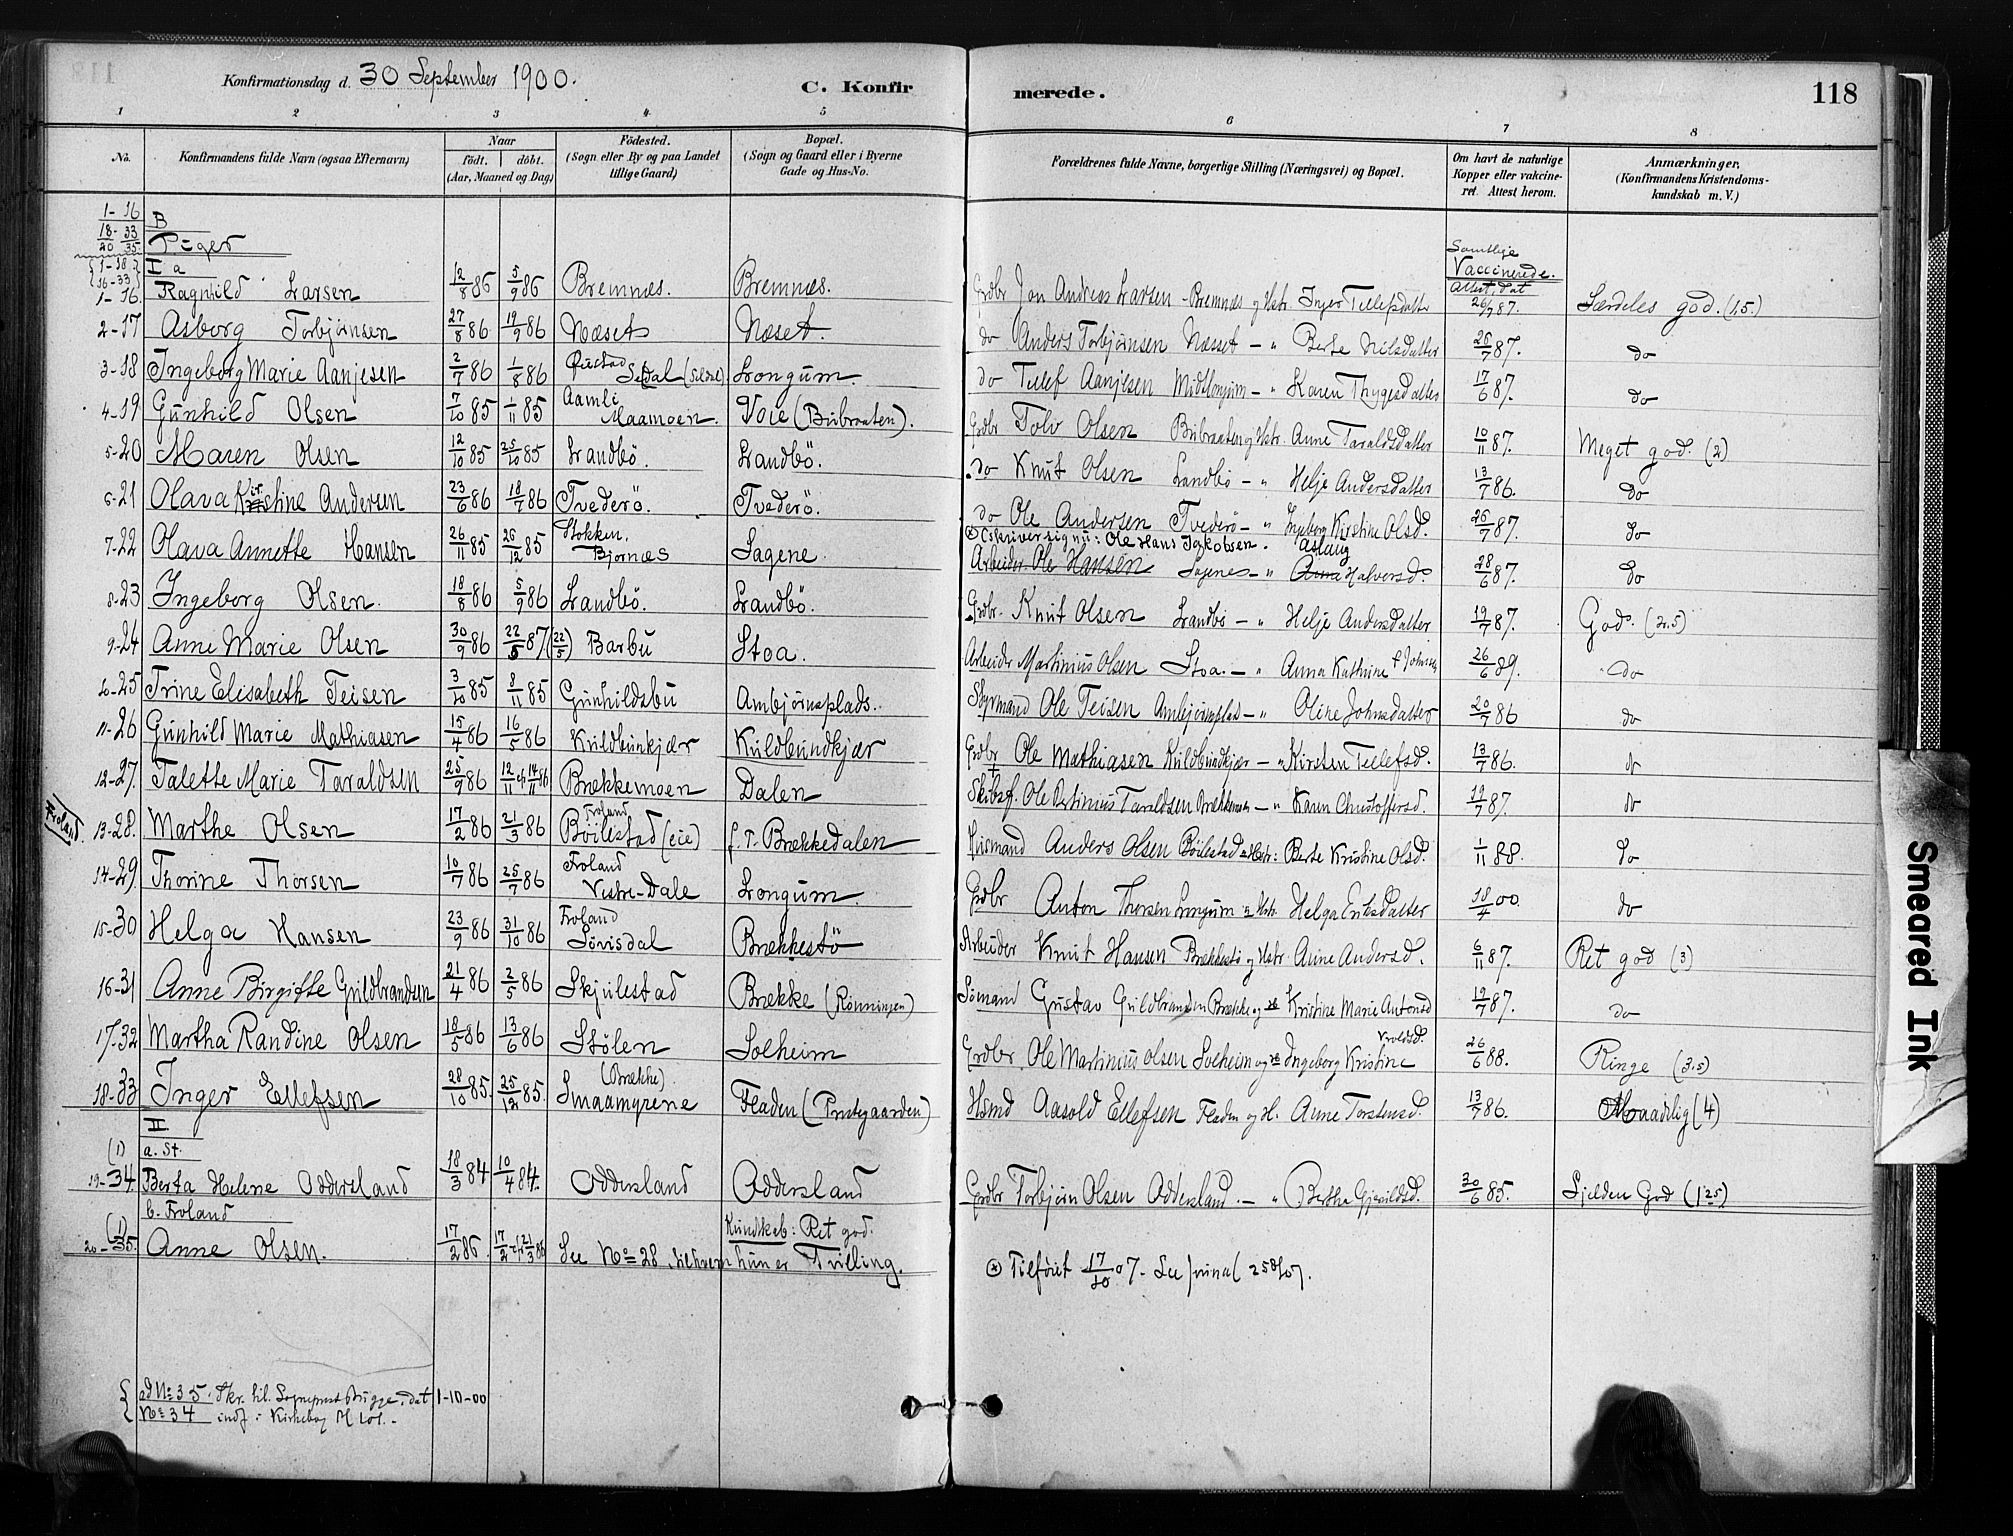 Konfirmationsdag d. 30 September 1900.
C. Konfirmerede.
118
1 2 3 4 5 6 7 8
No.
Konfirmandens fulde Navn (ogsaa Efternavn)
Naar
født. døbt.
(Aar, Maaned og Dag)
Fødested.
(Sogn eller By og paa Landet
tillige Gaard)
Bopæl.
(Sogn og Gaard eller i Byerne
Gade og Hus-No.
Forældrenes fulde Navne, borgerlige Stilling (Næringsvei) og Bopæl.
Om havt de naturlige
Kopper eller vakcine-
ret. Attest herom.
Anmærkninger.
(Konfirmandens Kristendoms-
kundskab m. V.)
1-16
18-33
20 35
B
Piger
1-18
16-33
I a
Samtlige
Vaccinerede.
Attest, dat
1-16. Ragnhild Larsen 12/8 86 5/9 86 Bremnæs. Bremnæs. Grdbr Jon Andreas Larsen - Bremnæs og Hstr. Inger Tellefsdatter 26/7 87. Særdeles god. (1,5.)
2-17 Asborg Torbjørnsen 27/8 86 19/9 86 Næset Næset. do Anders Torbjørnsen Næsset - " Berte Nilsdatter 26/7 87. do
3-18 Ingeborg Marie Aanjesen 2/7 86 1/8 86 Sedal Longum. do Tellef Aanjesen Midtlongum - " Karen Thygesdatter 17/6 87. do
4-19 Gunhild Olsen 7/10 85 1/11 85 Aamli Maamoen. Voie (Bubraaten). Grdbr Tolv Olsen Bubraaten og Hstr. Anne Taraldsdatter 10/11 87. Meget god. (2)
5-20 Maren Olsen 12/10 85 25/10 85 Landbö. Landbö. do Knut Olsen Landbö - " Helje Andersdatter 13/7 86. do
6-21 Olava Kirstine Andersen 23/6 86 18/7 86 Tvederö. Tvederö. do Ole Andersen Tvederö - " Ingeborg Kirstine Olsd. 26/7 87. do
7-22 Olava Annette Hansen 26/11 85 26/12 85 Stokken, Bjornæs Sagene. Ole Hans Jakobsen. Aslaug
Arbeider. Ole Hansen Sagene - " Anna Halvorsd. 28/6 87. do
8-23 Ingeborg Olsen. 18/8 86 5/9 86 Landbö. Landbö. Grdbr. Knut Olsen Landbö - " Helje Andersdatter 19/7 87. God. (2.5)
9-24 Anne Marie Olsen 30/9 86 22/5 87 (22/5) Barbu Stoa. Arbeider Martinius Olsen Stoa. - " Anna Kathrine 26/6 89. do
10-25 Trine Elisabeth Teisen 3/10 85 8/11 85 Gunhildsbu Ambjørnsplads. Styrmand Ole Teisen - " Oline Johnsdatter 20/7 86 do
11-26 Gunhild Marie Mathiasen 15/4 86 16/5 86 Kuldbunkjær Kuldbundkjær Grdbr Ole Mathiasen Kuldbundkjær - " Kirsten Tellefsd. 13/7 86. do
12-27. Talette Marie Taraldsen 25/9 86 12/11 14/11 86 Brækkemoen Dalen Skibsf. Ole Bertinius Taraldsen Brækkemoen - " Karen Christoffersd. 19/7 87. do
Froland
13-28. Marthe Olsen 17/2 86 21/3 86 Froland Böilestad (eie) f. T. Brækkedalen Husmand Anders Olsen Böilestad Hstr: Berte Kristine Olsd. 1/11 88. do
14-29 Thorine Thorsen 10/7 86 25/7 86 Froland Vestre-Dale Longum. Grdbr Anton Thorsen Longum Hstr. Helga Eriksdatter 18/4 00. do
15-30 Helga Hansen 23/9 86 31/10 86 Froland Lövisdal Brækkestö Arbeider Knut Hansen Brækkestö og Hstr. Anne Andersd. 6/11 87. Ret god (3)
16-31 Anne Birgitte Guldbrandsen 21/4 86 2/5 86 Skjulestad Brække (Rönningen) Sömand Gustav Guldbrandsen Brække og Kristine Marie Antonsd 19/7 87. do
17-32 Martha Randine Olsen 18/5 86 13/6 86 Stölen Solheim Grdbr Ole Martinius Olsen Solheim og Ingeborg Kristine 26/6 88. Ringe (3.5)
18-33 Inger Ellefsen 28/10 85. 25/12 85. (Brække). Smaamyrene Fladen (Prestgaarden) Hsmd Aasold Ellefsen Fladen og H. Anne Torstensd. 13/7 86. Maadelig (4)
II
(1) a. St.
19-34. Berta Helene Oddersland 18/3 84 10/4 84. Oddersland Oddersland Grdbr Torbjörn Olsen Oddersland. - " Bertha Gjerulds. 30/6 85. Sjelden God (1.25)
b. Froland
(1)
20-35. Anne Olsen. 17/2 86. 17/2 21/3 86 Se No 28, til hvem hun er Tvilling. Kundskab: Ret god.
Tilföiet 17/10 07. Se 258/07.
ad No 35. Skr. til Sogneprest Brygge, dat 1-10-00
No 34 indf. i Kirkebog
Smeared Ink